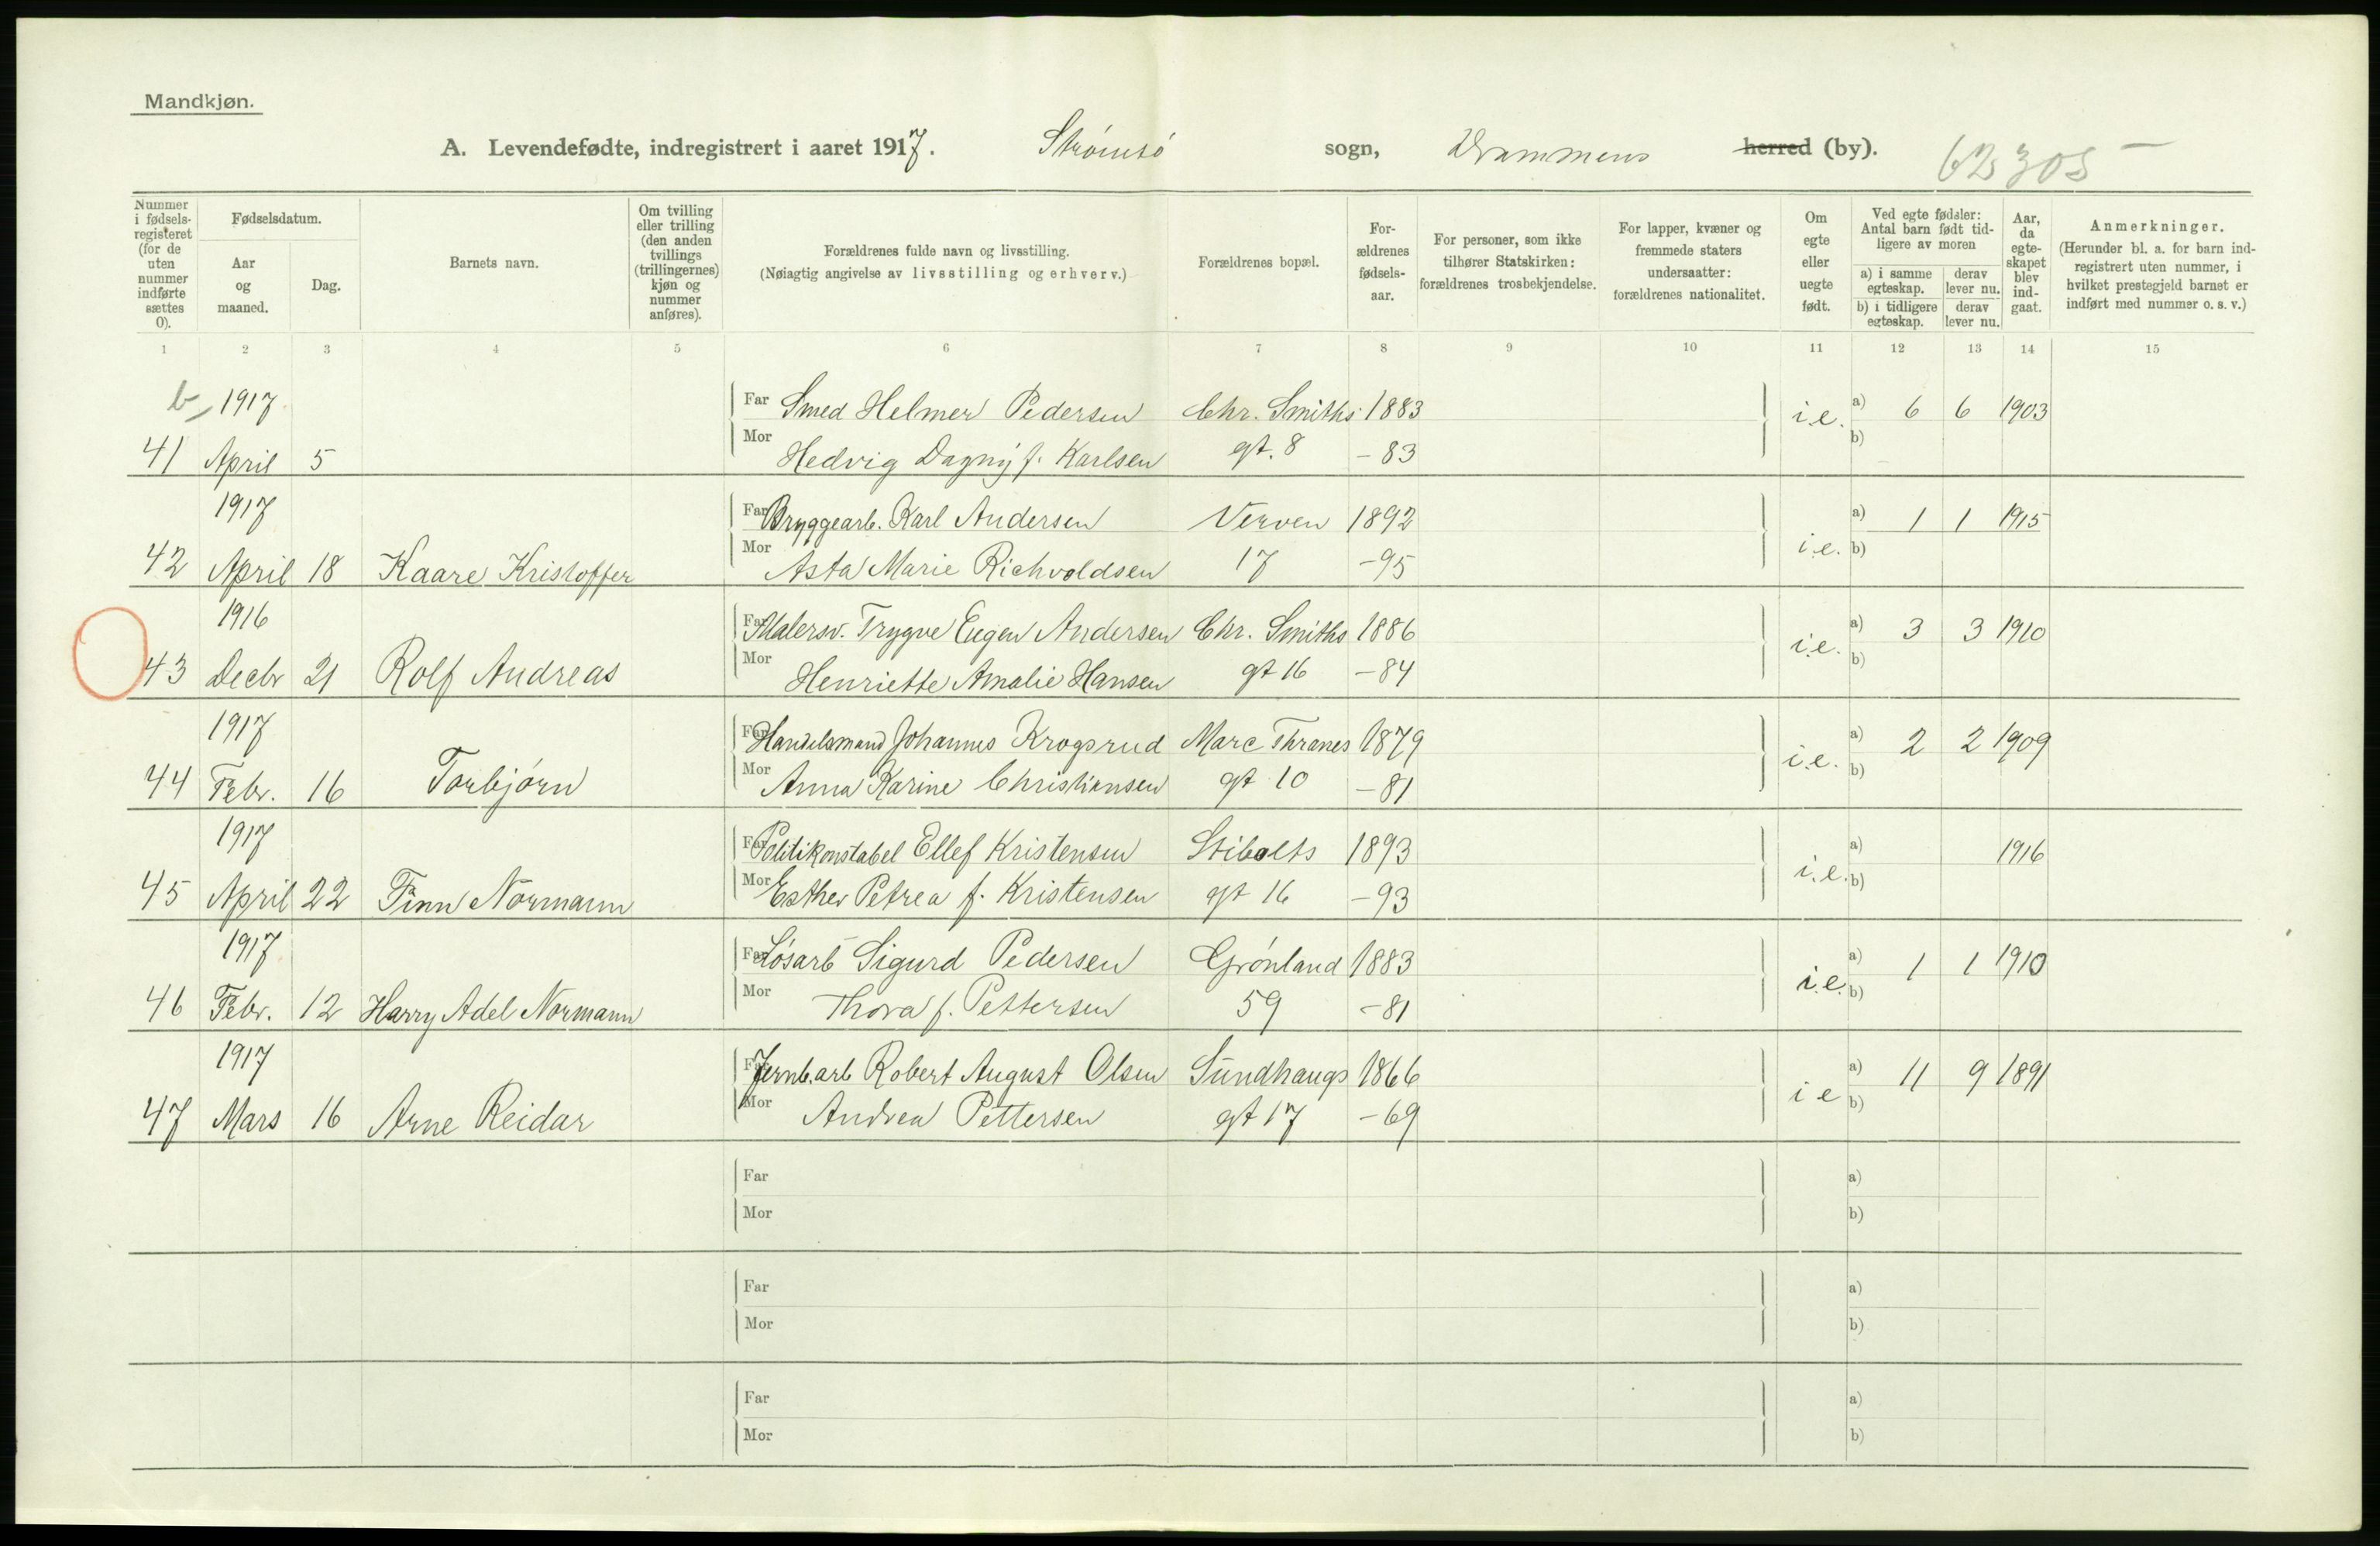 Mandkjøn.
A. Levendefødte, indregistrert i aaret 1917. Strømsø sogn, Drammens herred (by). 62305
Nummer i fødsels-registeret (for de uten nummer indførte sættes 0).
Fødselsdatum.
Aar og maaned.
Dag.
Barnets navn.
Om tvilling eller trilling (den anden tvillings (trillingernes) kjøn og nummer anføres).
Forældrenes fulde navn og livsstilling.
(Nøiagtig angivelse av livsstilling og erhverv.)
Forældrenes bopæl.
For-ældrenes fødsels-aar.
For personer, som ikke tilhører Statskirken: forældrenes trosbekjendelse.
For lapper, kvæner og fremmede staters undersaatter: forældrenes nationalitet.
Om egte eller uegte født.
Ved egte fødsler: Antal barn født tid-ligere av moren
a) i samme egteskap. derav lever nu.
b) i tidligere egteskap. derav lever nu.
Aar, da egte-skapet blev ind-gaat.
Anmerkninger.
(Herunder bl. a. for barn ind-registrert uten nummer, i hvilket prestegjeld barnet er indført med nummer o. s. v.)
1 2 3 4 5 6 7 8 9 10 11 12 13 14 15
b 1917 Far Smed Helmer Pedersen Chr. Smiths 1883 i.e. a) 6 6 1903
41 April 5 Mor Hedvig Dagny f. Karlsen gt. 8 -83 b)
1917 Far Bryggearb. Karl Andersen Verven 1892 a) 1 1 1915
42 April 18 Kaare Kristoffer Mor Asta Marie Richvoldsen 17 -95 i.e. b)
1916 Far Malersv. Trygve Eugen Andersen Chr. Smiths 1886 a) 3 3 1910
43 Decbr 21 Rolf Andreas Mor Henriette Amalie Hansen gt 16 -84 i.e. b)
1917 Far Handelsmand Johannes Krogsrud Marc Thranes 1879 a) 2 2 1909
44 Febr. 16 Torbjørn Mor Anna Karine Christiansen gt 10 -81 i.e. b)
1917 Far Politikonstabel Ellef Kristensen Stibolts 1893 a) 1916
45 April 22 Finn Normann Mor Esther Petrea f. Kristensen gt 16 -93 i.e. b)
1917 Far Løsarb Sigurd Pedersen Grønland 1883 a) 1 1 1910
46 Febr. 12 Harry Adel Normann Mor Thora f. Pettersen 59 -81 i.e. b)
1917 Far Jernb.arb Robert August Olsen Sundhaugs 1866 a) 11 9 1891
47 Mars 16 Arne Reidar Mor Andrea Pettersen gt 17 -69 i e b)
Far a)
Mor b)
Far a)
Mor b)
Far a)
Mor b)